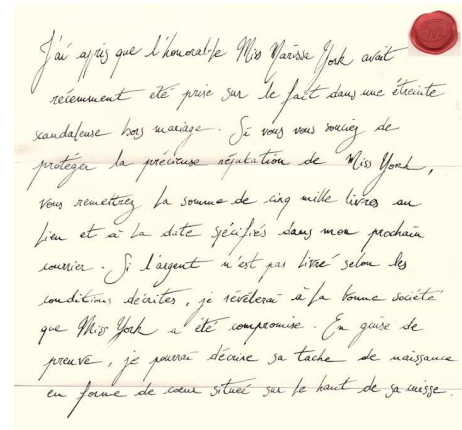 J'ai appris que l'honorable Miss Marisse York avait
récemment été prise sur le fait dans une étreinte
scandaleuse hors mariage. Si vous vous souciez de
protéger la précieuse réputation de Miss York,
vous remettrez la somme de cinq mille livres au
lieu et à la date spécifiés dans mon prochain
courrier. Si l'argent n'est pas livré selon les
conditions décrites, je révèlerai à la bonne société
que Miss York a été compromise. En guise de
preuve, je pourrai décrire sa tache de naissance
en forme de coeur située sur le haut de sa cuisse.